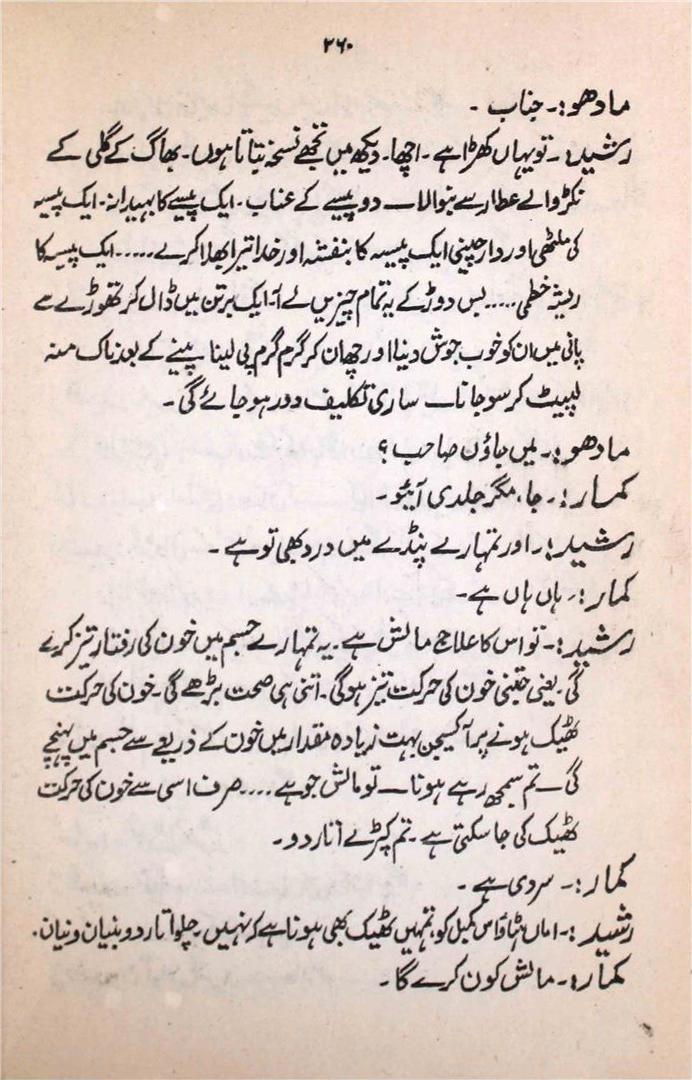 ۲۶۰
مادھو:۔ جناب ۔
رشید:۔ تو یہاں کھڑا ہے ۔ اچھا۔ دیکھ میں تجھے نسخہ بتاتا ہوں۔ بھاگ کے گلی کے
نکڑ والے عطار سے بنوالا۔۔ دو پیسے کے عناب ۔ ایک پیسے کا بہیدانہ ۔ ایک پیسہ
کی ملٹھی اور دارچینی ایک پیسہ کا بنفشہ اور خدا تیرا بھلا کرے ..... ایک پیسہ کا
ریشہ خطمی ..... بس دوڑ کے یہ تمام چیزیں لے آ۔ ایک برتن میں ڈال کر تھوڑے سے
پانی میں ان کو خوب جوش دینا اور چھان کر گرم گرم پی لینا پینے کے بعد ناک منہ
لپیٹ کر سو جانا۔۔ ساری تکلیف دور ہو جائے گی ۔
مادھو:۔ میں جاؤں صاحب ؟
کمار:۔ جا، مگر جلدی آئیو ۔
رشید:۔ اور تمہارے پنڈے میں درد بھی تو ہے ۔
کمار:۔ ہاں ہاں ہے ۔
رشید:۔ تو اس کا علاج مالش ہے ۔ یہ تمہارے جسم میں خون کی رفتار تیز کرے
گی۔ یعنی جتنی خون کی حرکت تیز ہوگی۔ اتنی ہی صحت بڑھے گی۔ خون کی حرکت
ٹھیک ہونے پر آکسیجن بہت زیادہ مقدار میں خون کے ذریعے سے جسم میں پہنچے
گی۔۔ تم سمجھ رہے ہو نا۔۔ تو مالش جو ہے .... صرف اسی سے خون کی حرکت
ٹھیک کی جا سکتی ہے ۔ تم کپڑے اتار دو ۔
کمار:۔ سردی ہے ۔
رشید:۔ اماں ہٹاؤ اس کمبل کو، تمہیں ٹھیک بھی ہونا ہے کہ نہیں۔ چلو اتار دو بنیان ونیان۔
کمار:۔ مالش کون کرے گا ۔